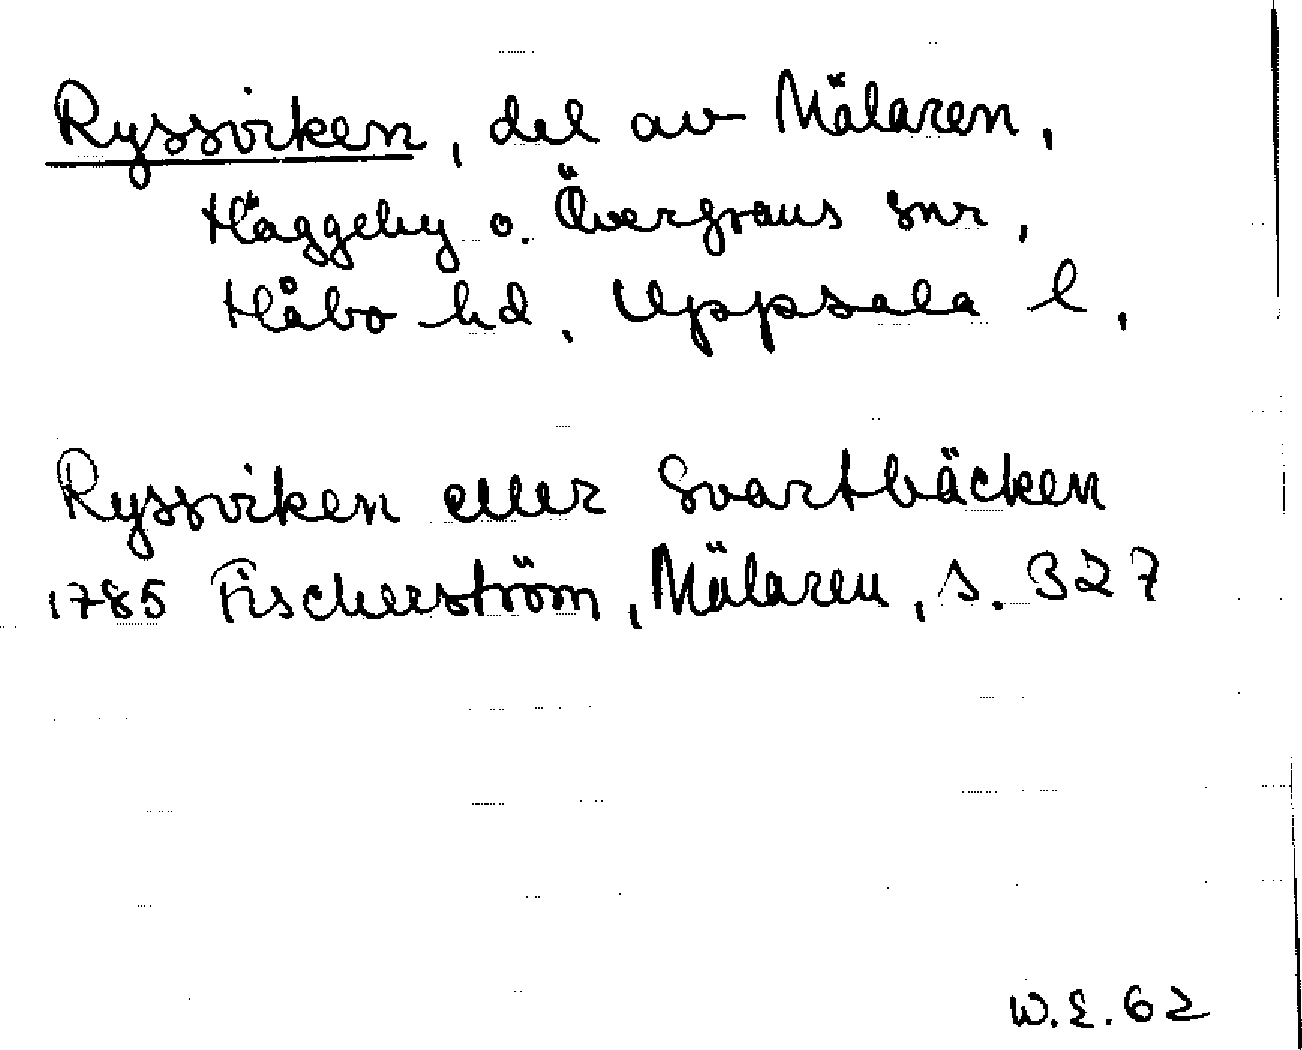 Ryssviken, del av Mälaren,
Häggeby o. Övergrans snr,
Håbo hd, Uppsala l,
Ryssviken eller Svartbäcken
1785 Fischerström, Mälaren, s. 327
W.E. 62